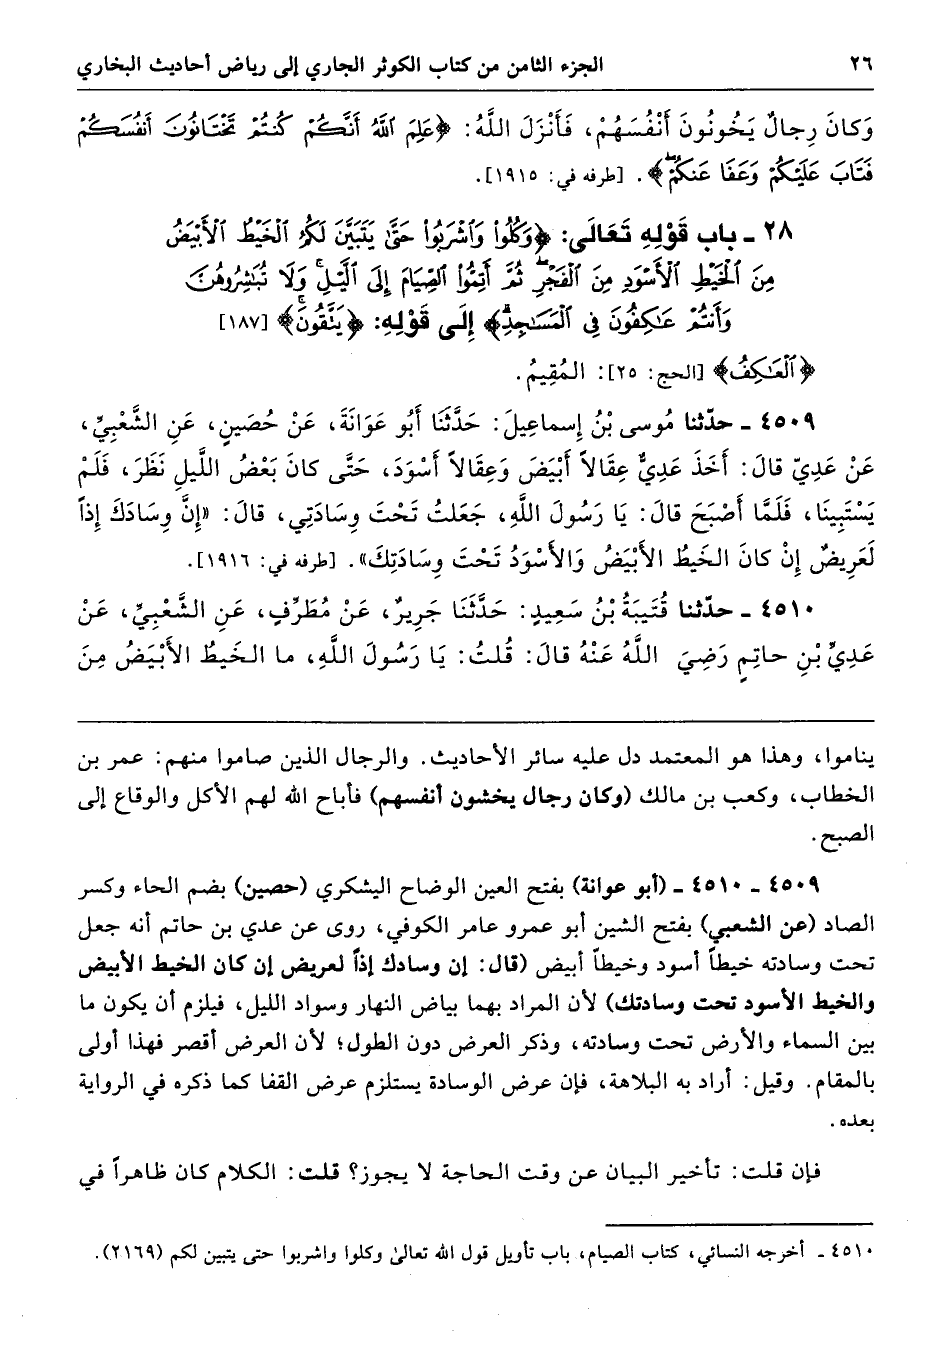 ٢٦ الجزء الثامن من كتاب الكوثر الجاري إلى رياض أحاديث البخاري
وَكانَ رِجالٌ يَخُونُونَ أَنْفُسَهُمْ، فَأَنْزَلَ اللَّهُ: ﴿عَلِمَ ٱللَّهُ أَنَّكُمْ كُنتُمْ تَخْتَانُونَ أَنفُسَكُمْ
فَتَابَ عَلَيْكُمْ وَعَفَا عَنكُمْ﴾. [طرفه في: ١٩١٥].
٢٨ ـ باب قَوْلِهِ تَعَالَى: ﴿وَكُلُوا۟ وَٱشْرَبُوا۟ حَتَّىٰ يَتَبَيَّنَ لَكُمُ ٱلْخَيْطُ ٱلْأَبْيَضُ
مِنَ ٱلْخَيْطِ ٱلْأَسْوَدِ مِنَ ٱلْفَجْرِ ۖ ثُمَّ أَتِمُّوا۟ ٱلصِّيَامَ إِلَى ٱلَّيْلِ ۚ وَلَا تُبَٰشِرُوهُنَّ
وَأَنتُمْ عَٰكِفُونَ فِى ٱلْمَسَٰجِدِ ۗ﴾ إِلَى قَوْلِهِ: ﴿يَتَّقُونَ﴾ [١٨٧]
﴿ٱلْعَٰكِفُ﴾ [الحج: ٢٥]: المُقِيمُ.
٤٥٠٩ ـ حدّثنا مُوسى بْنُ إِسماعِيلَ: حَدَّثَنَا أَبُو عَوَانَةَ، عَنْ حُصَينٍ، عَنِ الشَّعْبِيِّ،
عَنْ عَدِيٍّ قالَ: أَخَذَ عَدِيٌّ عِقَالاً أَبْيَضَ وَعِقَالاً أَسْوَدَ، حَتَّى كانَ بَعْضُ اللَّيلِ نَظَرَ، فَلَمْ
يَسْتَبِينَا، فَلَمَّا أَصْبَحَ قالَ: يَا رَسُولَ اللَّهِ، جَعَلتُ تَحْتَ وِسَادَتِي، قالَ: «إِنَّ وِسَادَكَ إِذاً
لَعَرِيضٌ إِنْ كانَ الخَيطُ الأَبْيَضُ وَالأَسْوَدُ تَحْتَ وِسَادَتِكَ». [طرفه في: ١٩١٦].
٤٥١٠ ـ حدّثنا قُتَيبَةُ بْنُ سَعِيدٍ: حَدَّثَنَا جَرِيرٌ، عَنْ مُطَرِّفٍ، عَنِ الشَّعْبِيِّ، عَنْ
عَدِيِّ بْنِ حاتِمٍ رَضِيَ اللَّهُ عَنْهُ قالَ: قُلتُ: يَا رَسُولَ اللَّهِ، ما الخَيطُ الأَبْيَضُ مِنَ
يناموا، وهذا هو المعتمد دل عليه سائر الأحاديث. والرجال الذين صاموا منهم: عمر بن
الخطاب، وكعب بن مالك (وكان رجال يخشون أنفسهم) فأباح الله لهم الأكل والوقاع إلى
الصبح.
٤٥٠٩ ـ ٤٥١٠ ـ (أبو عوانة) بفتح العين الوضاح اليشكري (حصين) بضم الحاء وكسر
الصاد (عن الشعبي) بفتح الشين أبو عمرو عامر الكوفي، روى عن عدي بن حاتم أنه جعل
تحت وسادته خيطاً أسود وخيطاً أبيض (قال: إن وسادك إذاً لعريض إن كان الخيط الأبيض
والخيط الأسود تحت وسادتك) لأن المراد بهما بياض النهار وسواد الليل، فيلزم أن يكون ما
بين السماء والأرض تحت وسادته، وذكر العرض دون الطول؛ لأن العرض أقصر فهذا أولى
بالمقام. وقيل: أراد به البلاهة، فإن عرض الوسادة يستلزم عرض القفا كما ذكره في الرواية
بعده.
فإن قلت: تأخير البيان عن وقت الحاجة لا يجوز؟ قلت: الكلام كان ظاهراً في
٤٥١٠ ـ أخرجه النسائي، كتاب الصيام، باب تأويل قول الله تعالى وكلوا واشربوا حتى يتبين لكم (٢١٦٩).